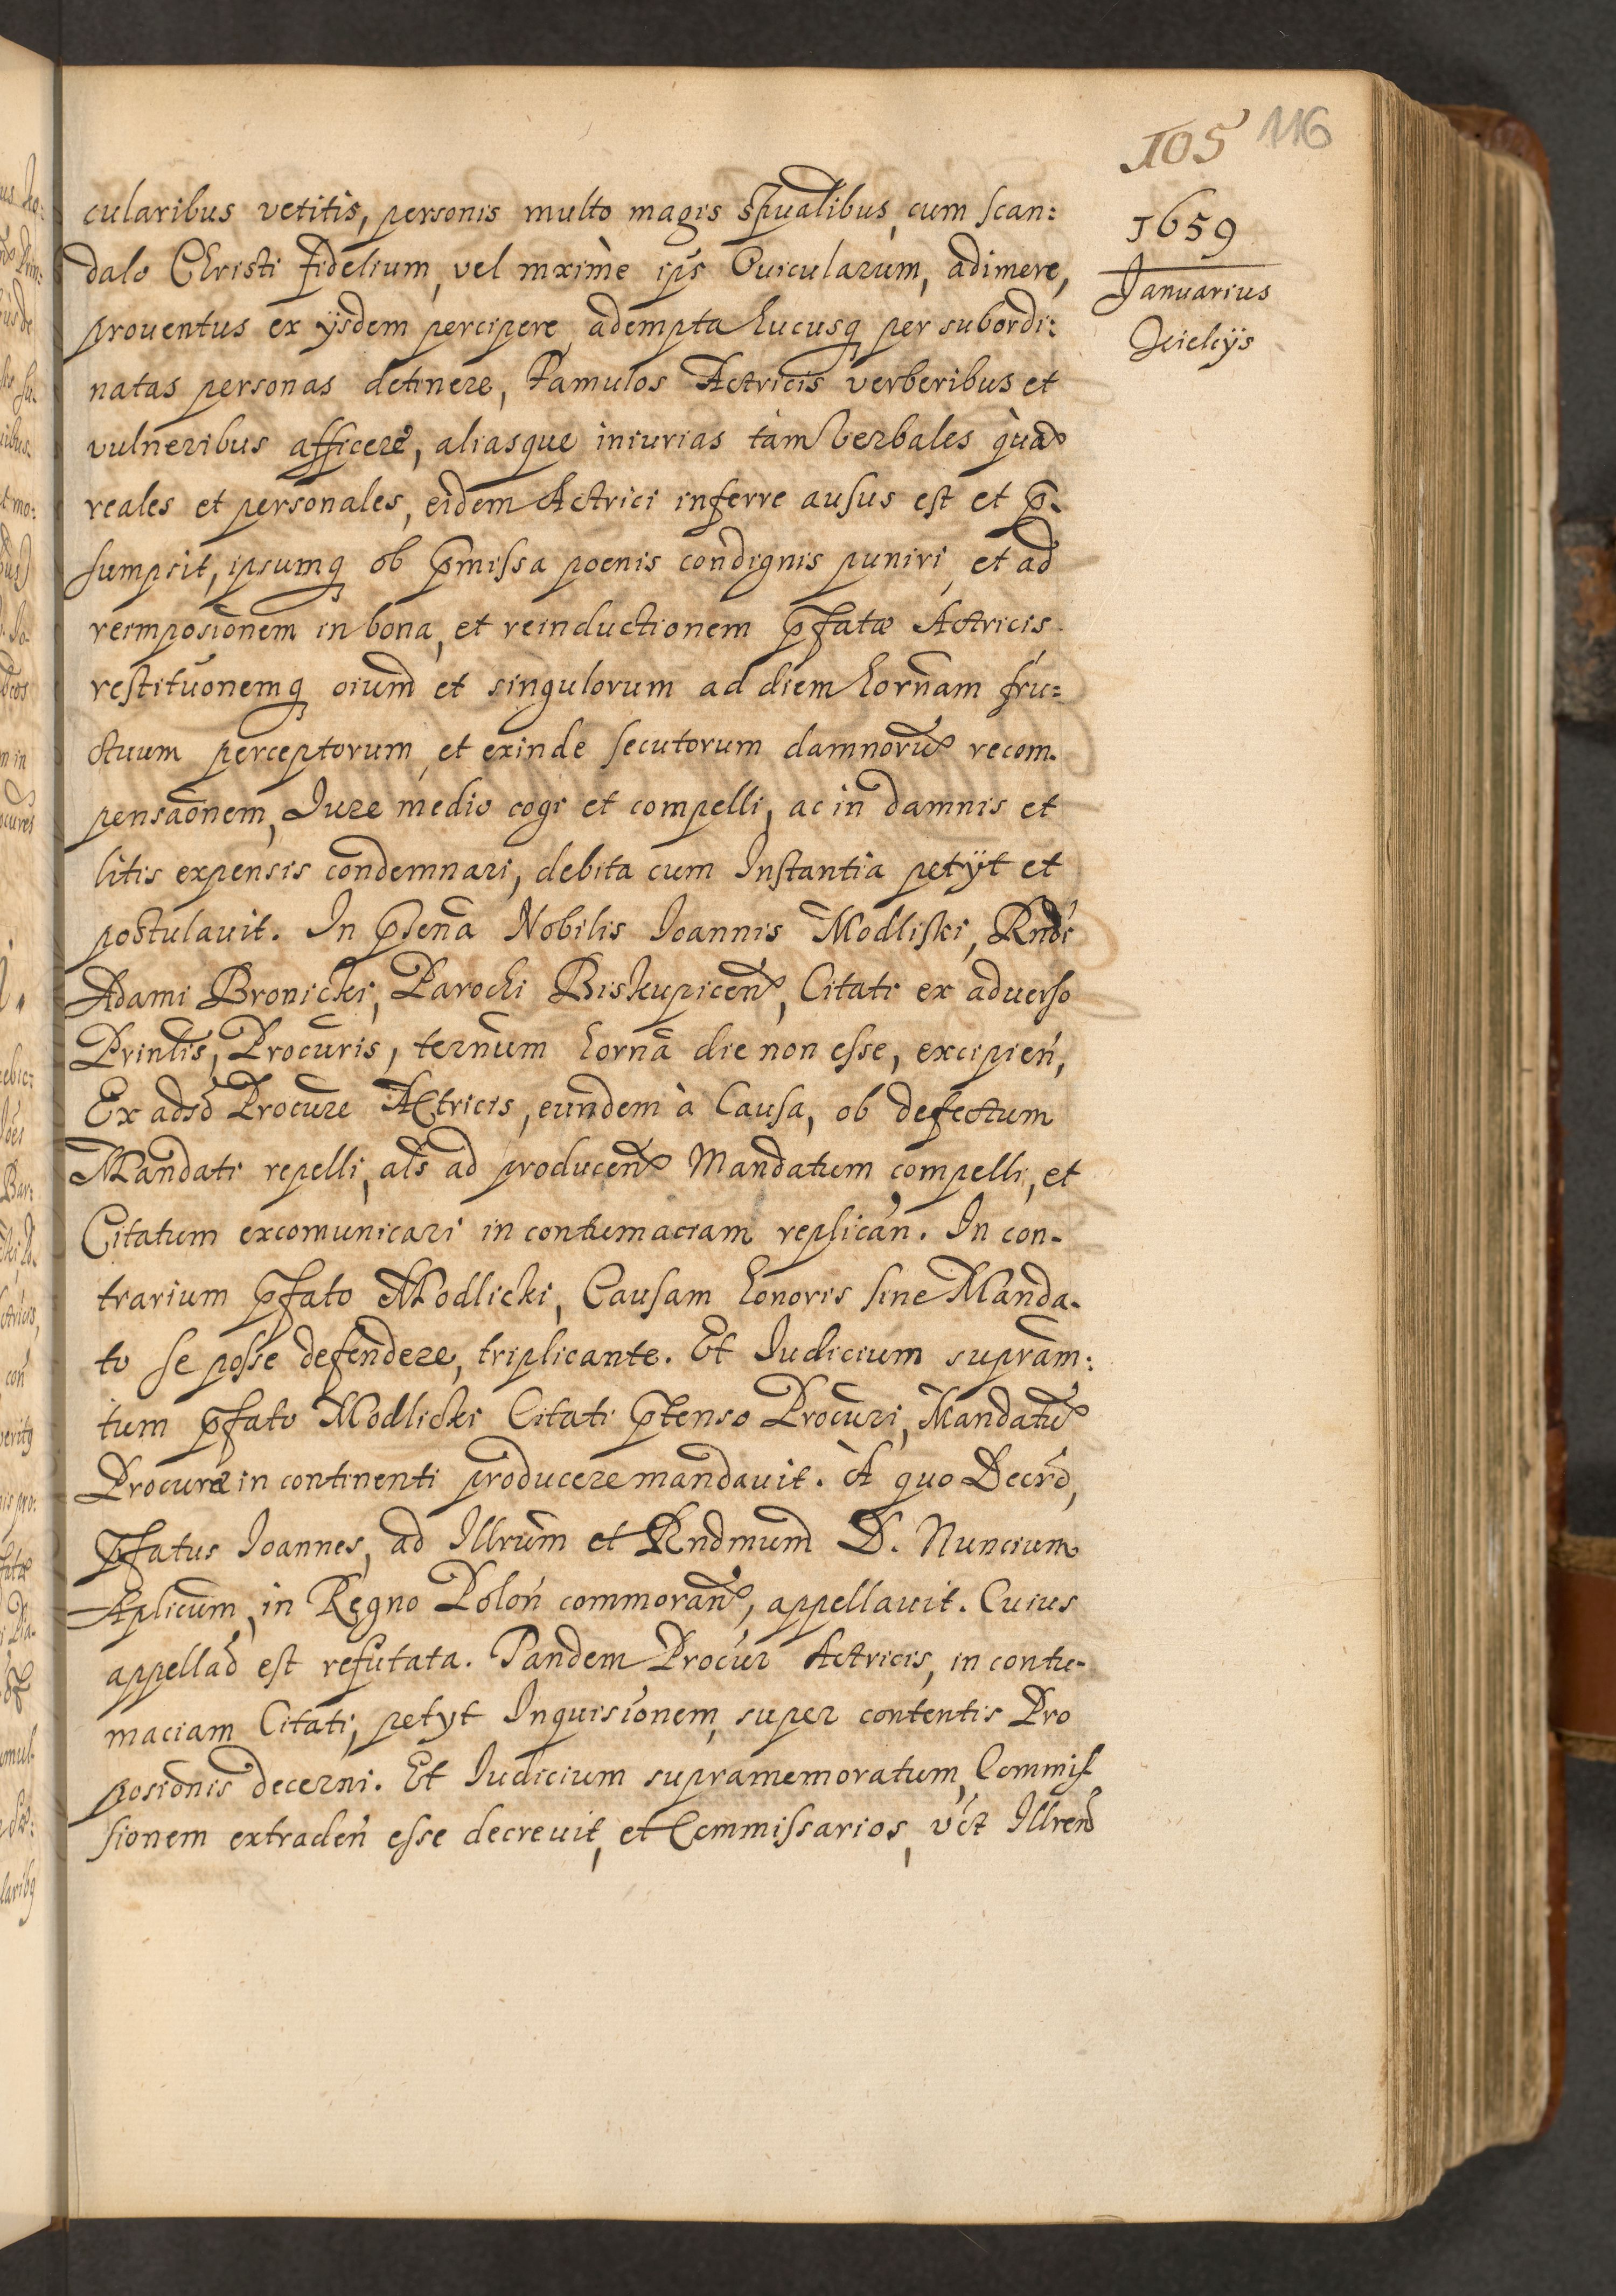 105 116
1659
Januarius
Kielcijs
cularibus vetitis, personis multo magis spualibus, cum scan:
dalo Christi fidelium, vel mxime ips Ouicularum, adimere,
prouentus ex ijsdem percipere, adempta hucusq per subordi:
natas personas detinere, Famulos Actricis verberibus et
vulneribus afficere, aliasque iniurias tam verbales qua
reales et personales, eidem Actrici inferre ausus est et p̄-
sumpsit, ipsumq ob p̄missa poenis condignis puniri, et ad
reimposionem in bona, et reinductionem p̄fatæ Actricis
restituonemq oium et singulorum ad diem hornam fru:
ctuum perceptorum, et exinde secutorum damnorū recom-
pensaonem, Jure medio cogi et compelli, ac in damnis et
litis expensis condemnari, debita cum Instantia petijt et
postulauit. In p̄sena Nobilis Joannis Modliski, Rndi
Adami Bronicki, Parochi Biskupicen, Citati ex aduerso
Prinlis, Procuris, ternum horna die non esse, excipień,
Ex adso Procure Actricis, eundem à Causa, ob defectum
Mandati repelli, als ad producen Mandatum compelli, et
Citatum excomunicari in contumaciam replican. In con-
trarium p̄fato Modlicki, Causam honoris sine Manda-
to se posse defendere, triplicante. Et Judicium supram:
tum p̄fato Modlicki Citati p̄tenso Procuri, Mandatū
Procurae in continenti producere mandauit. A quo Decro,
p̄fatus Joannes, ad Illrum et Rndmum D. Nuncium
Aplicum, in Regno Poloń commoran, appellauit. Cuius
appellao est refutata. Tandem Procur Actricis, in contu-
maciam Citati, petyt Inquisionem, super contentis Pro
posionis decerni. Et Judicium supramemoratum, Commis
sionem extradeń esse decreuit, et Commissarios, vct Illren